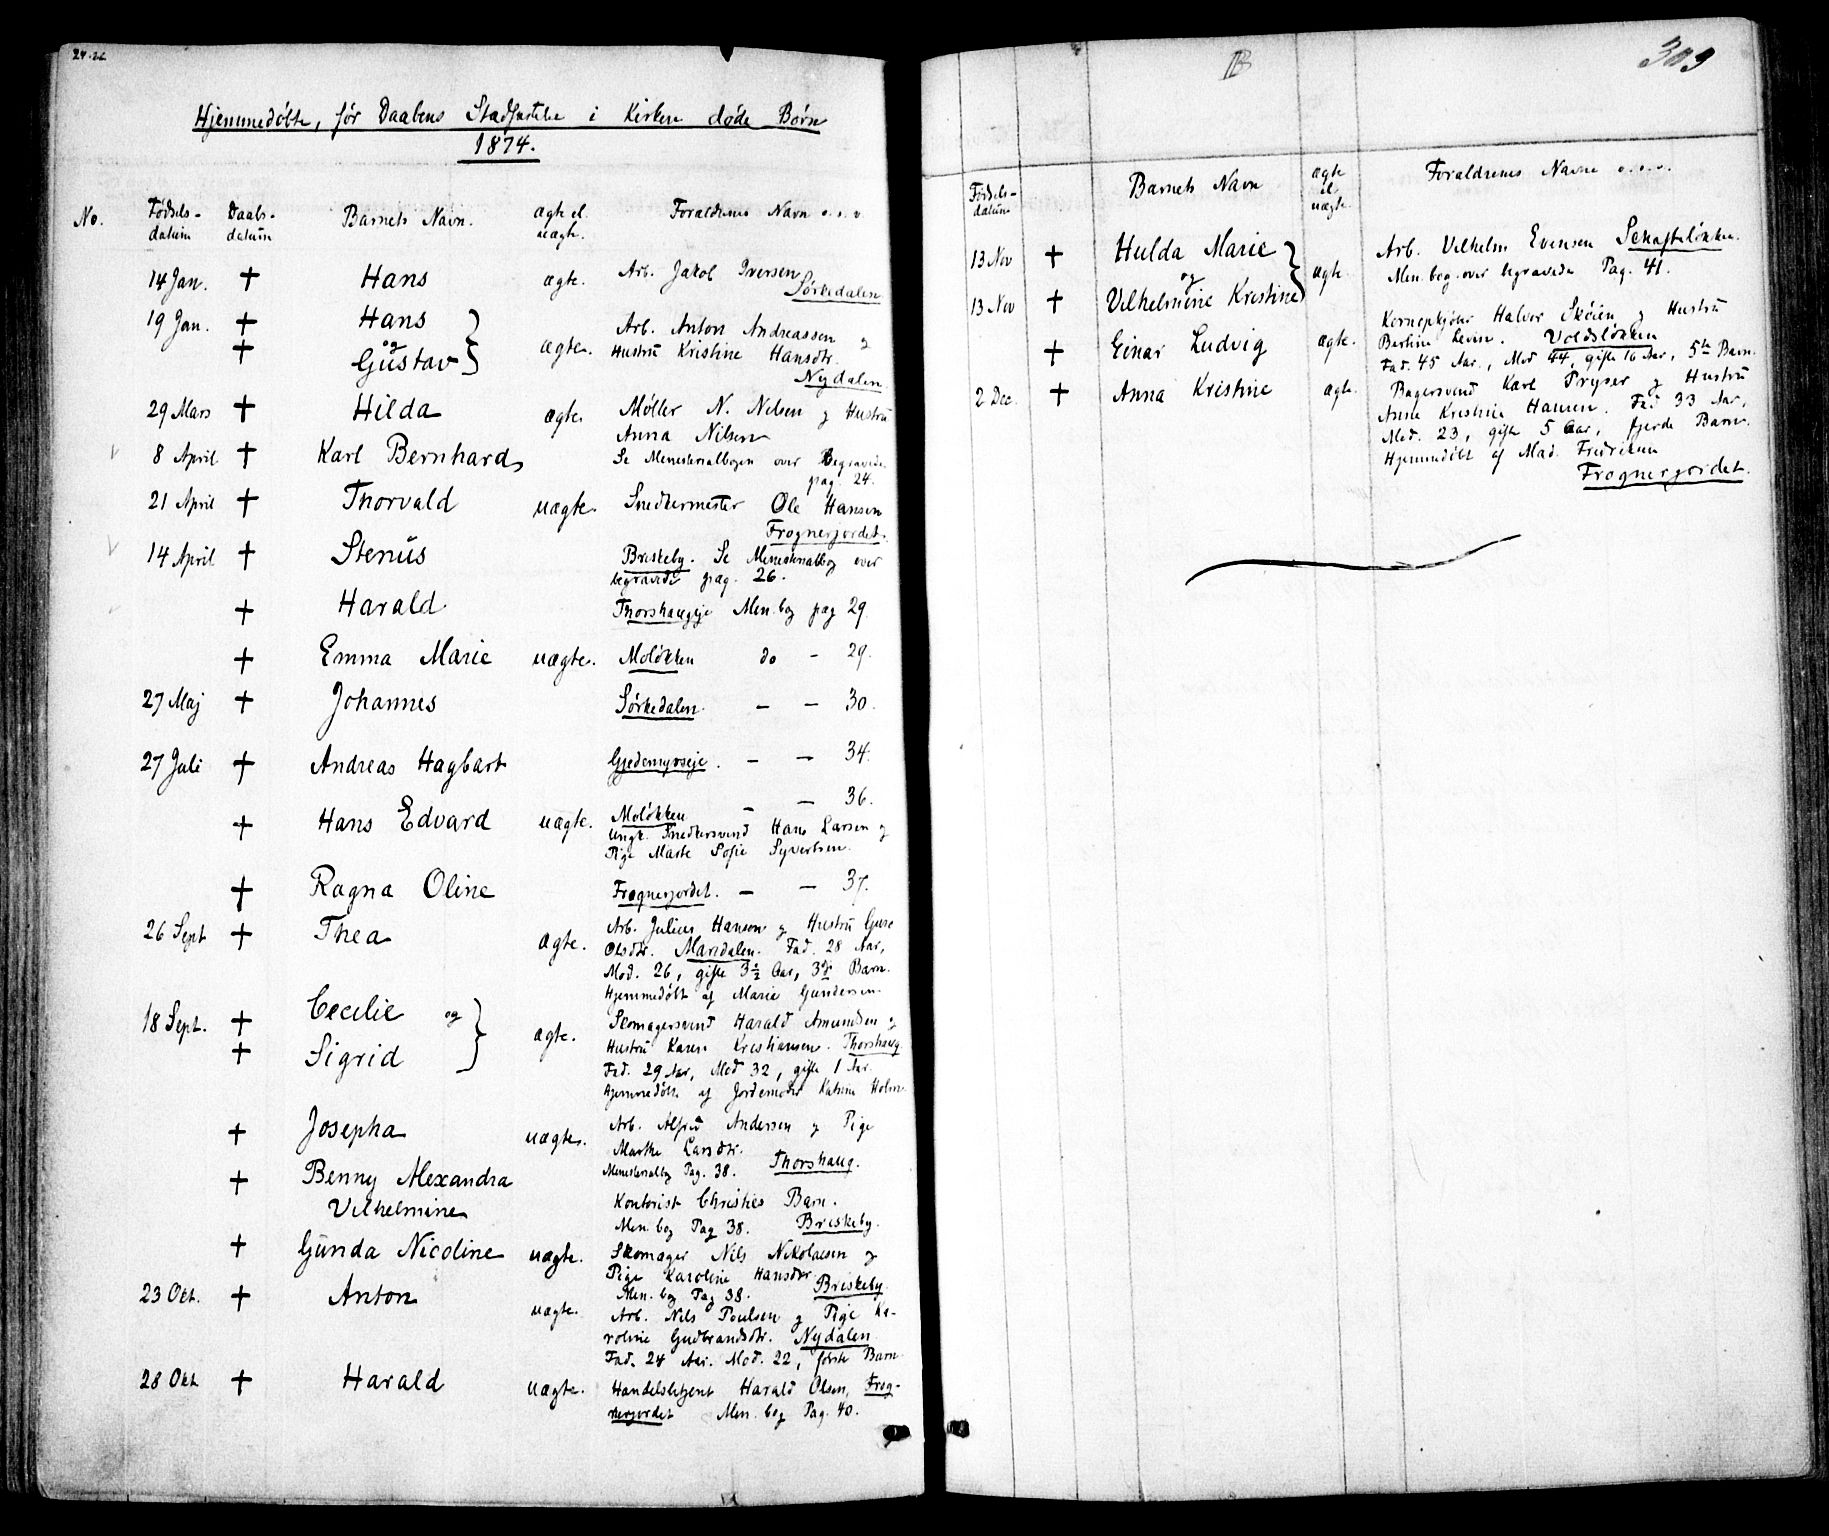 Hjemmedøbte, før Daabens Stadfæstelse i Kirken døde Børn
1874.
No.
Fødsels-
datum
Daabs-
datum
Barnets Navn.
ægte el.
uægte.
Foraldrenes Navn o.s.v
14 Jan. + Hans ægte. Arb. Jakob Iversen
Sørkedalen
19 Jan. + Hans
+ og Gustav } ægte. Arb. Anton Andreassen og
Hustru Kristine Hansdtr.
Nydalen
29 Mars + Hilda ægte. Møller N. Nilsen og Hustru
Anna Nilsen
8 April + Karl Bernhard Se Ministerialbogen over Begravede
pag. 24.
21 April + Thorvald uægte. Snedkermester Ole Hansen
Frognerjordet.
14 April + Stenus Briskeby. Se Ministerialbog over
begravede pag. 26.
+ Harald Thorshaugeje Min.bog pag 29.
+ Emma Marie uægte. Moløkken do - 29.
27 Maj + Johannes Sørkedalen. — — 30.
27 Juli + Andreas Hagbart Gjedemyrseje. — — 34.
+ Hans Edvard uægte. Moløkken — — 36.
Ungk. Snedkersvend Hans Larsen og
Pige Marte Sofie Syvertsen.
+ Ragna Oline Frognerjordet. — — 37.
26 Sept + Thea ægte. Arb. Julius Hansen og Hustru
Olsdtr. Maridalen. Fad. 28 Aar,
Mod. 26, gifte 3½ Aar, 3die Barn.
Hjemmedøbt af Marie Gundersen.
18 Sept. + Cecilie og
+ Sigrid } ægte. Skomagersvend Harald Amundsen og
Hustru Karen Kristiansen. Thorshaug
Fad. 29 Aar, Mod 32, gifte 1 Aar.
Hjemmedøbte af Jordemoder Katrine Holm
+ Josepha uægte. Arb. Alfred Andersen og Pige
Marthe Larsdtr.
Ministerialbog Pag. 38. Thorshaug.
+ Benny Alexandra
Vilhelmine Kontorist Christies Barn.
Min. bog Pag 38. Briskeby.
+ Gunda Nicoline uægte. Skomager Nils Nikolaisen og
Pige Karoline Hansdtr
Min. bog Pag 38. Briskeby
23 Okt. + Anton uægte. Arb. Nils Poulsen og Pige Ka-
roline Gudbrandsdtr. Nydalen
Fad. 24 Aar. Mod. 22, første Barn
28 Okt + Harald uægte. Handelsbetjent Harald Olsen, Frog-
nerjordet Min. bog Pag. 40.
B
309
Fødsels-
datum
Barnets Navn
ægte
el.
uægte.
Foraldrenes Navne o.s.v.
13 Nov + Hulda Marie
og
13 Nov + Vilhelmine Kristine } ægte. Arb. Vilhelm Evensen Schafteløkken.
Min. bog over begravede Pag. 41.
+ Einar Ludvig ægte. Halvor Skøien og Hustru
Bertine Voldsløkken
Fad. 45 Aar, Mod 44, gifte 16 Aar, 5te Barn.
2 Dec. + Anna Kristine ægte. Bagersvend Karl Pryser og Hustru
Anne Kristine Hansen. Fad 33 Aar,
Mod. 23, gifte 5 Aar, fjerde Barn.
Hjemmedøbt af Mad. Fredriksen
Frognerjordet.